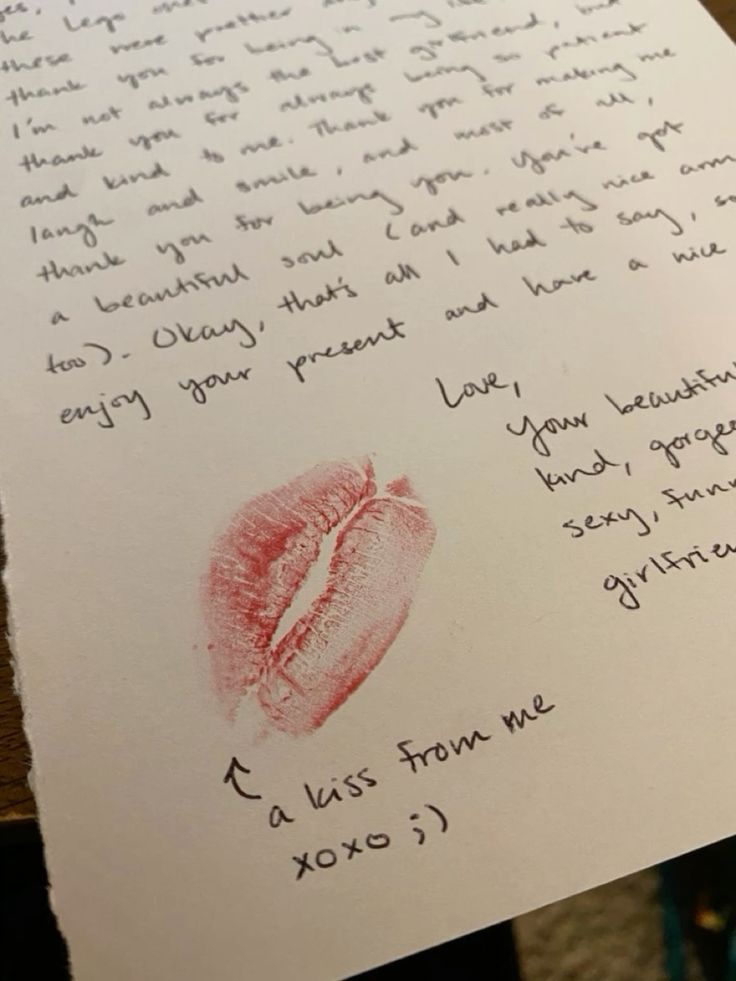 he Lego
these were prettier
thank you for being in my
I'm not always the best girlfriend, but
thank you for always being so patient
and kind to me. Thank you for making me
laugh and smile, and most of all,
thank you for being you. You've got
a beautiful soul (and really nice arm
too). Okay, that's all I had to say, so
enjoy your present and have a nice
Love,
Your beautiful
kind, gorge
sexy, funn
girlfrien
↑ a kiss from me
xoxo ;)